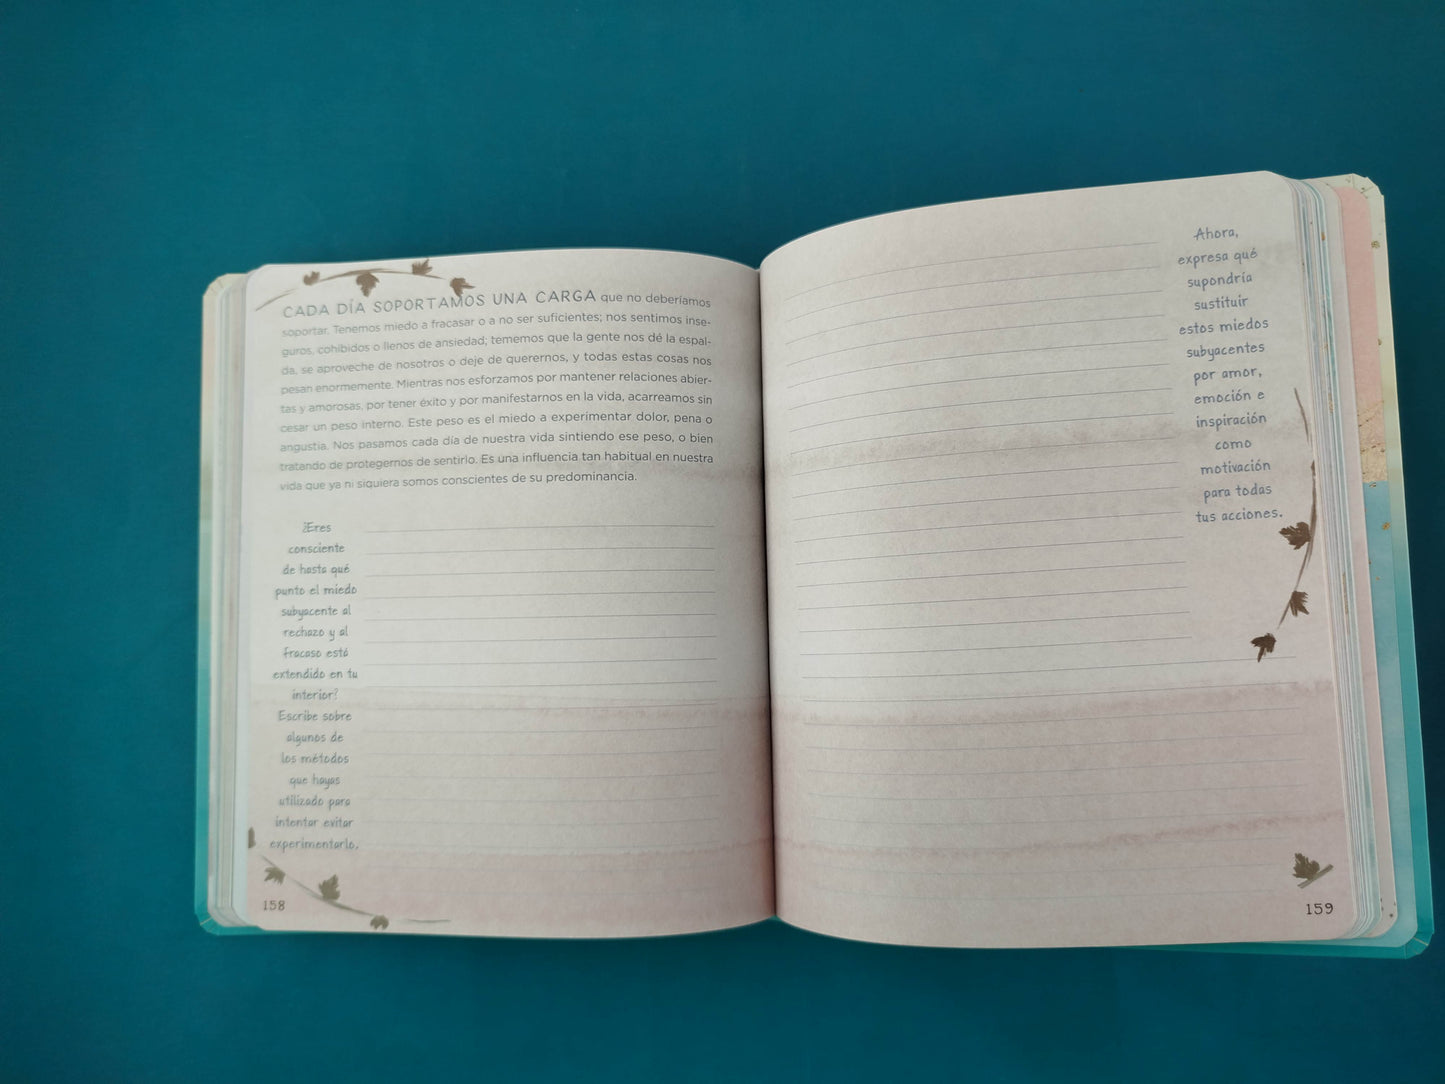 CADA DÍA SOPORTAMOS UNA CARGA que no deberíamos
soportar. Tenemos miedo a fracasar o a no ser suficientes; nos sentimos inse-
guros, cohibidos o llenos de ansiedad; tememos que la gente nos dé la espal-
da, se aproveche de nosotros o deje de querernos, y todas estas cosas nos
pesan enormemente. Mientras nos esforzamos por mantener relaciones abier-
tas y amorosas, por tener éxito y por manifestarnos en la vida, acarreamos sin
cesar un peso interno. Este peso es el miedo a experimentar dolor, pena o
angustia. Nos pasamos cada día de nuestra vida sintiendo ese peso, o bien
tratando de protegernos de sentirlo. Es una influencia tan habitual en nuestra
vida que ya ni siquiera somos conscientes de su predominancia.
¿Eres
consciente
de hasta qué
punto el miedo
subyacente al
rechazo y al
fracaso está
extendido en tu
interior?
Escribe sobre
algunos de
los métodos
que hayas
utilizado para
intentar evitar
experimentarlo.
158
Ahora,
expresa qué
supondría
sustituir
estos miedos
subyacentes
por amor,
emoción e
inspiración
como
motivación
para todas
tus acciones.
159